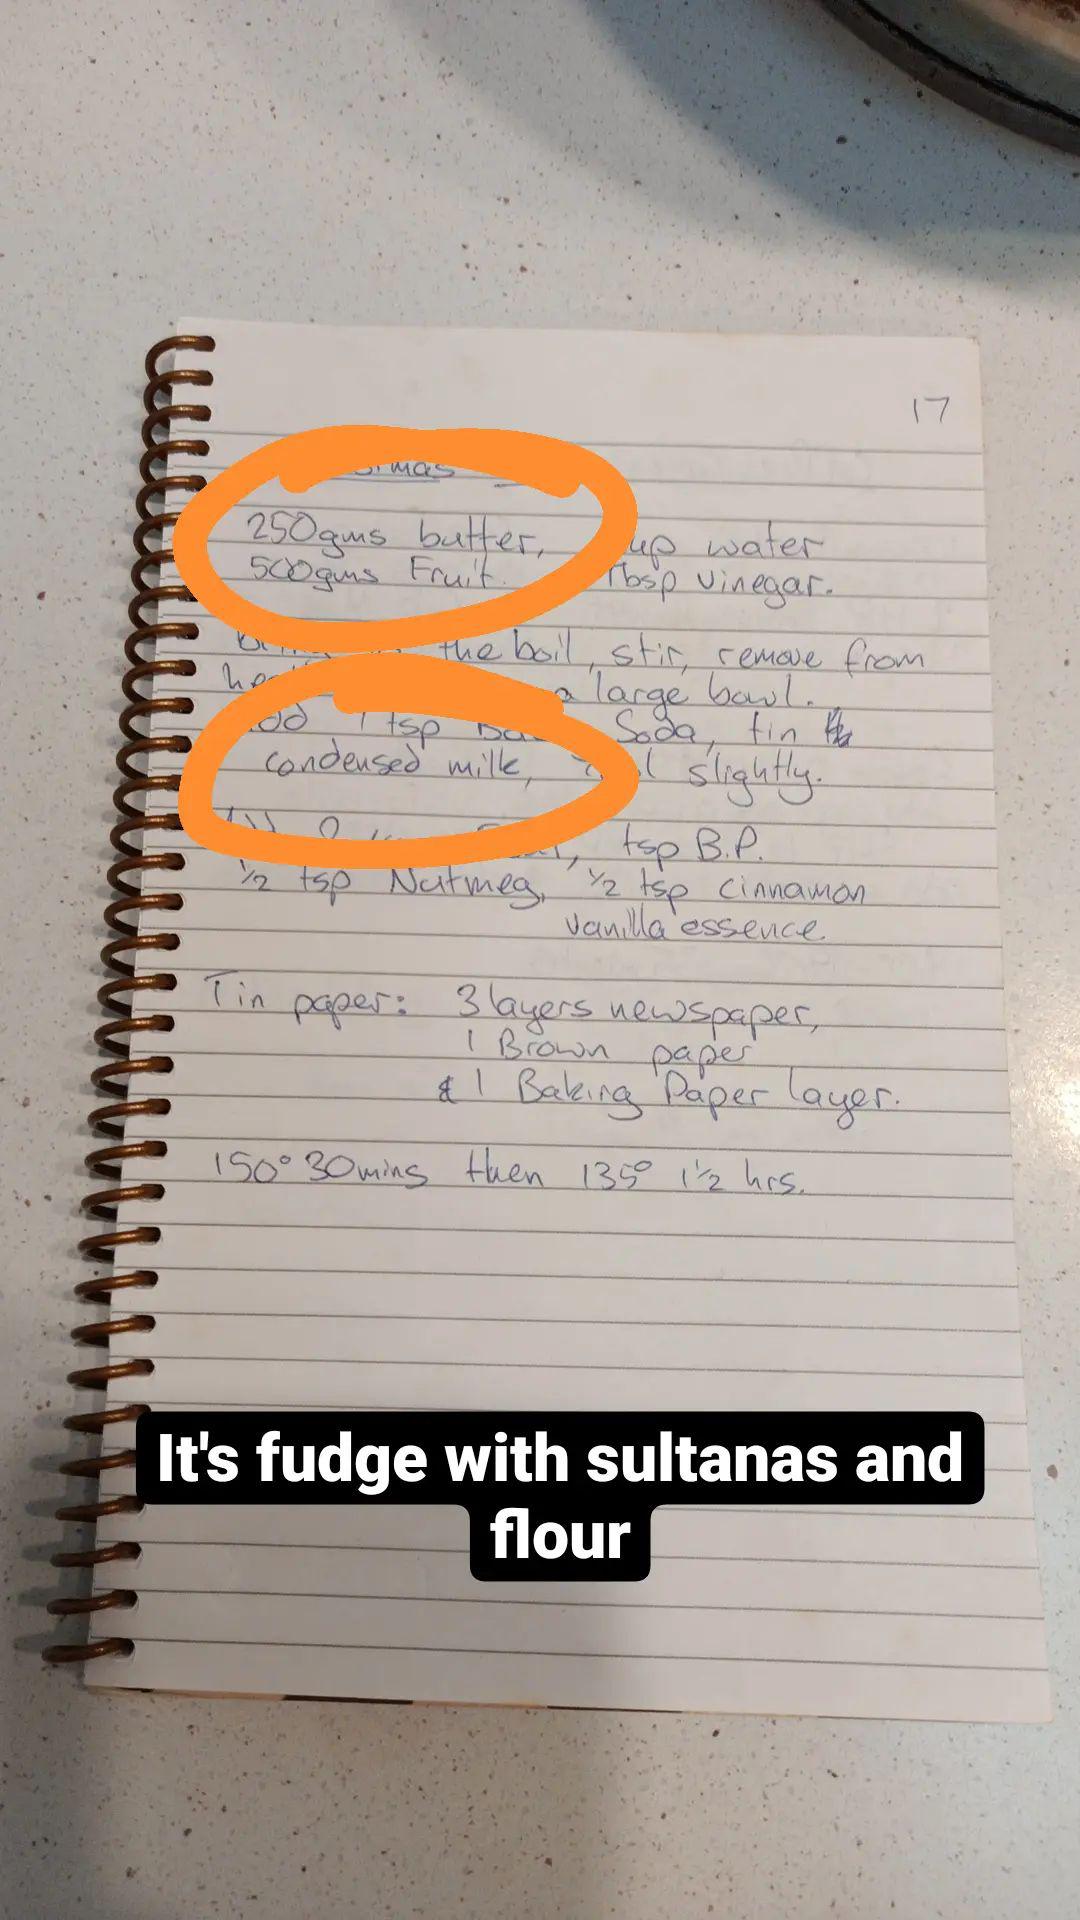 17
250gms butter,
water
500gms Fruit.
Tbsp vinegar.
the boil, stir, remove from
a large bowl.
1 tsp
Soda, tin
condensed milk,
slightly.
tsp B.P.
1/2 tsp Nutmeg, 1/2 tsp cinnamon
vanilla essence.
Tin paper: 3 layers newspaper,
1 Brown paper
& 1 Baking Paper layer.
150° 30mins then 135° 1 1/2 hrs.
It's fudge with sultanas and
flour